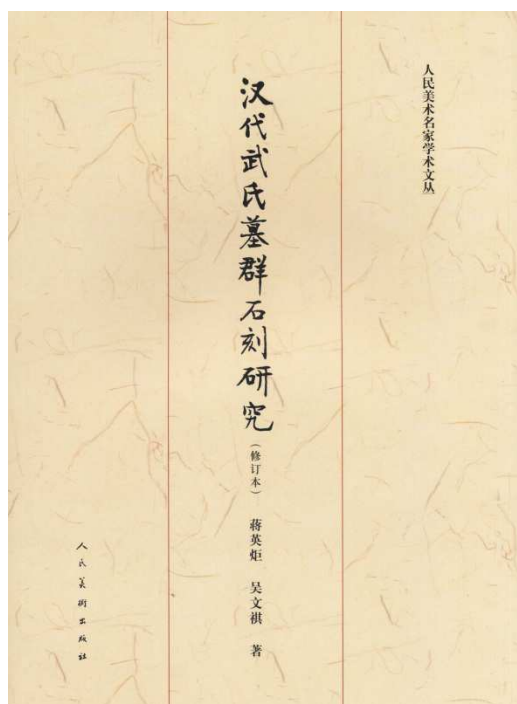 人民美术名家学术文丛
汉代武氏墓群石刻研究
（修订本）
蒋英炬 吴文祺 著
人民美術出版社